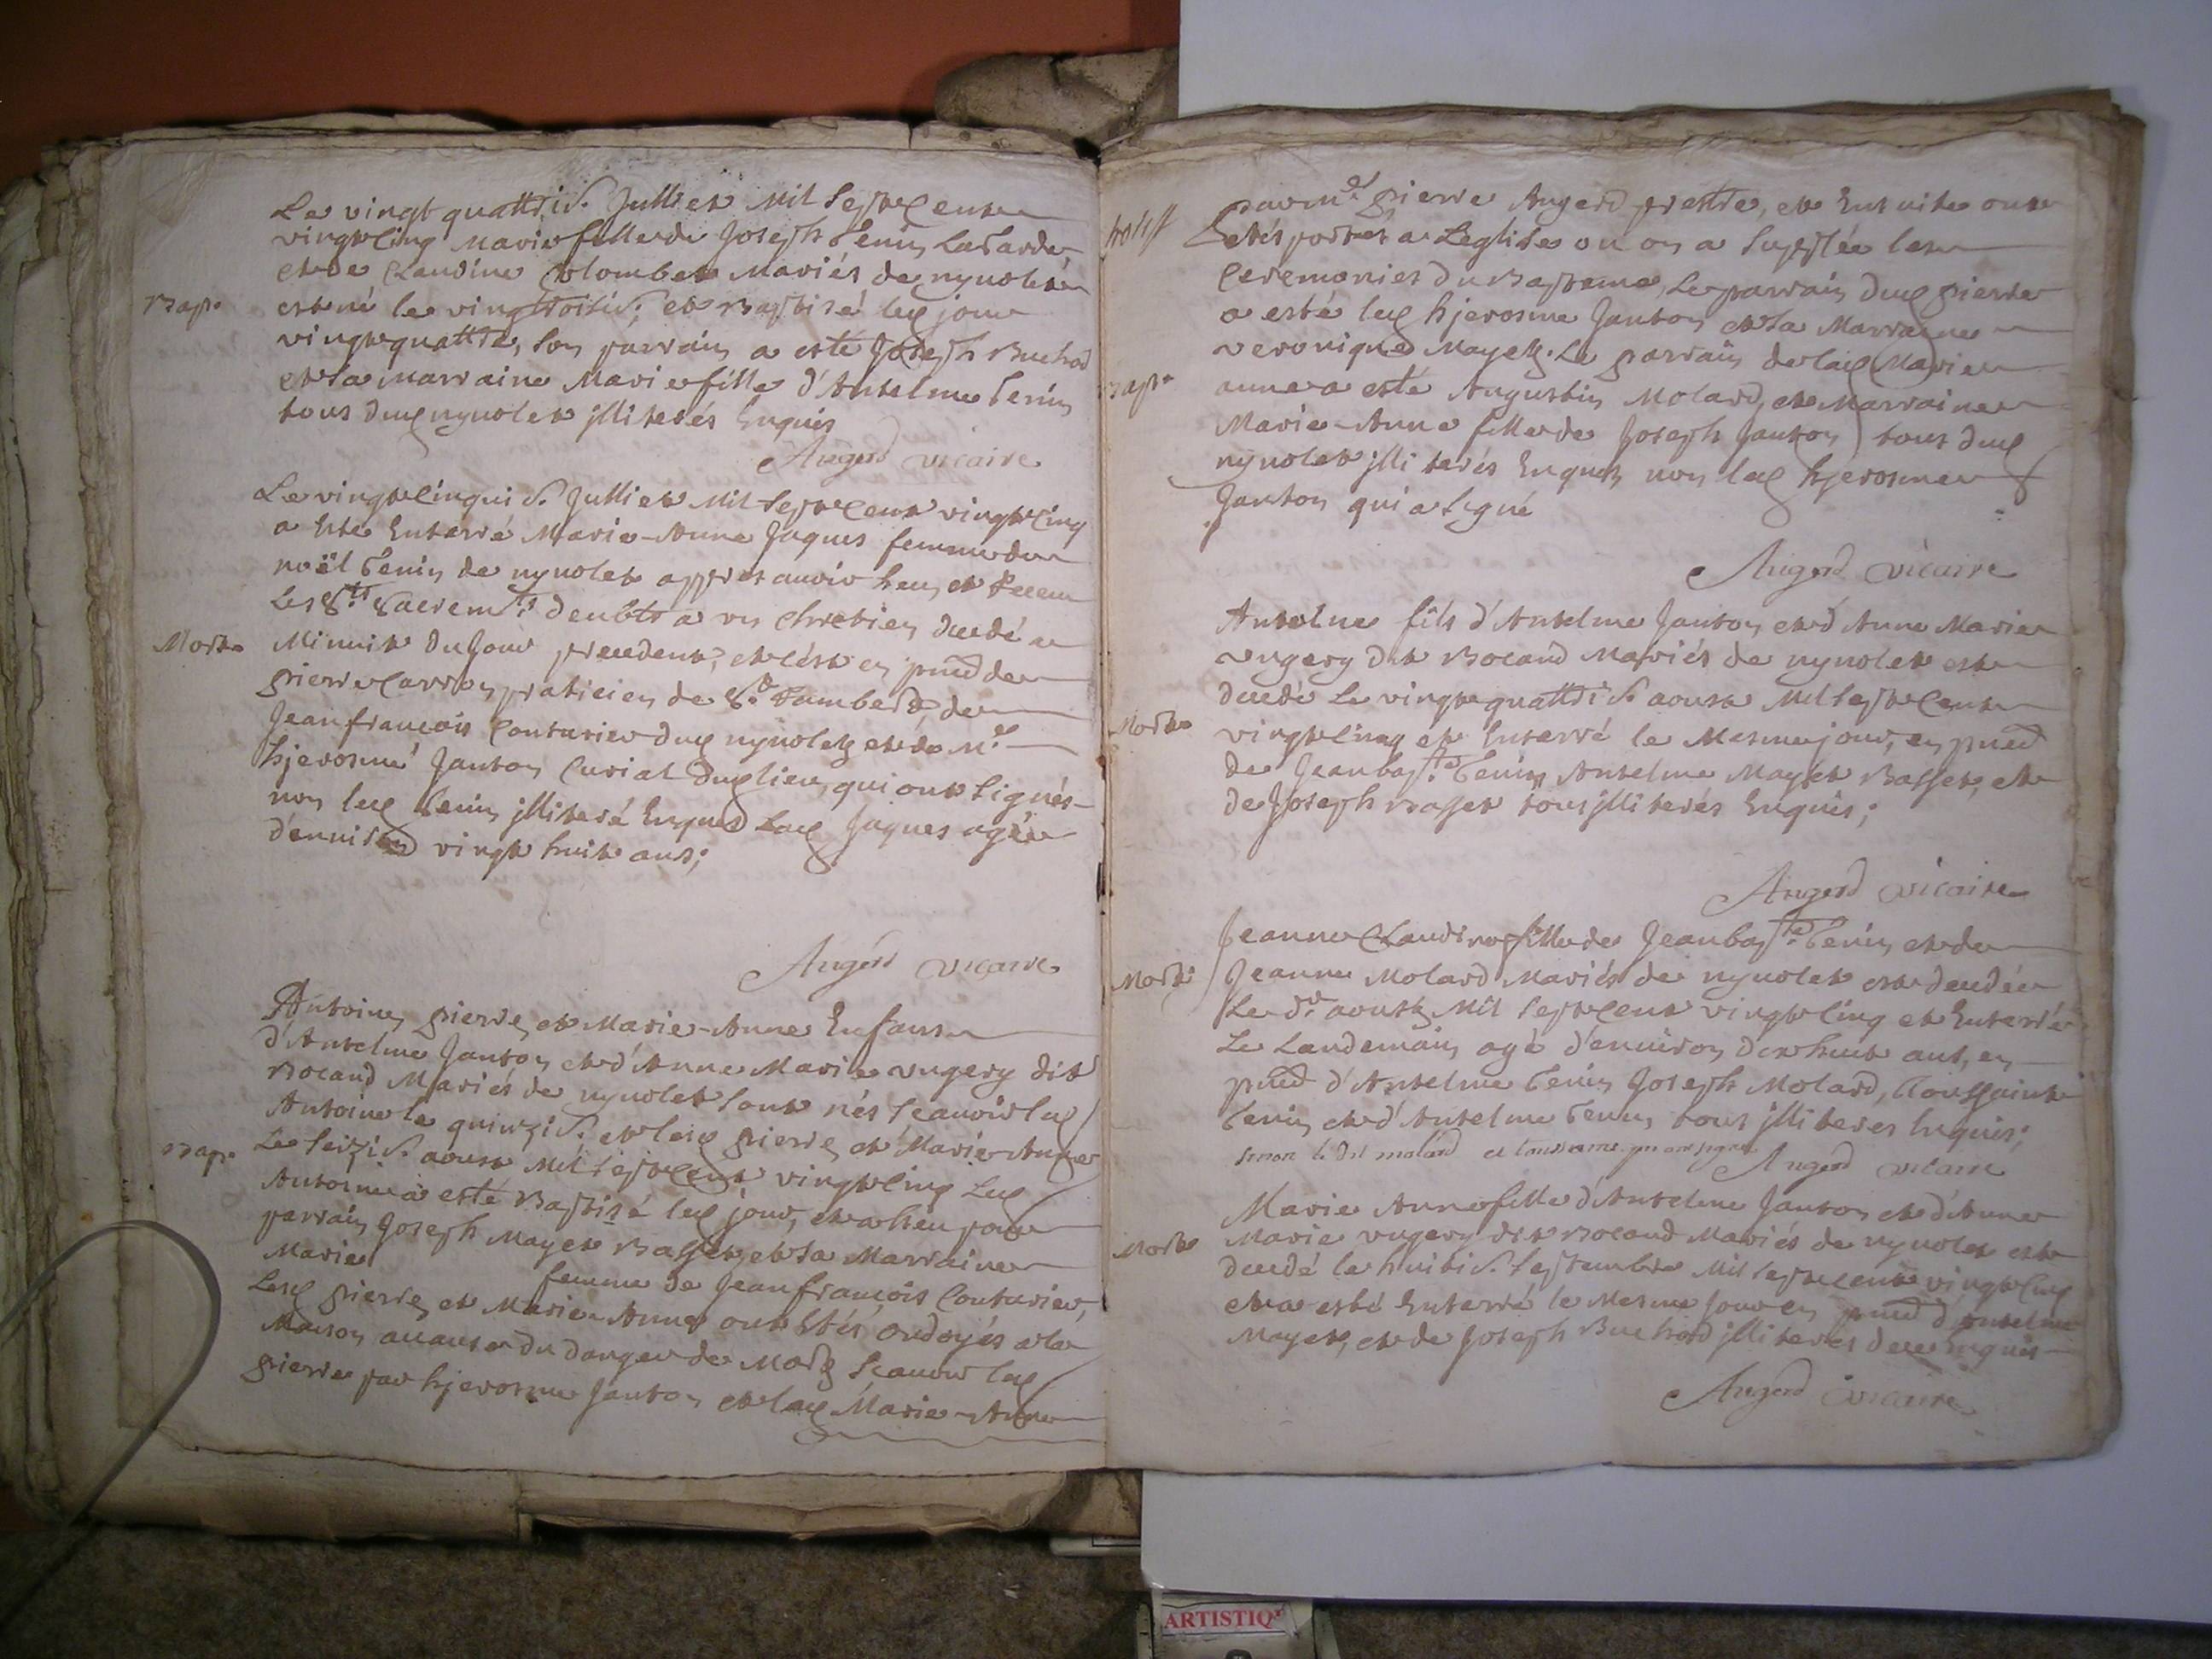 Le vingt quattris. Julliet Mil Sept Cent
vingt Cinq Marie fille de Joseph Tenin Latarde,
et de Claudine Colombet Mariés de nynolet
Bap.
est né le vingttoisis; et Baptisé led jour
vingt quattre, Son parrain a esté Joseph Buchod
et la Marraine Marie fille d'Antelme Tenin
tous dud nynolet jlliterés Enquis
Angerd vicaire
Le vingt Cinquis. Julliet Mil Sept Cent vingt Cinq
a Ete Enterré Marie-Anne Jaques femme de
noël Tenin de nynolet appres auoir heu, et Receu
Les Sts Sacremts deubts a vn Chretien decedé a
Mort
Minuit du Jour precedent, et c'est en pnce de
pierre Carron praticien de St Rambert, de
Jean françois Couturier dud nynolet et de Me
hjerosme Janton Curial dud lieu, qui ont Signés
non led Tenin jlliteré Enquis Lad Jaques agée
d'enuiron vingt huit ans;
Angerd vicaire
Antoine, pierre, et Marie-Anne Enfans
d'Antelme Janton et d'Anne Marie vugery dit
Bocand Mariés de nynolet Sont nés Scauoir led
Antoine le quinzis. et lesd pierre, et Marie-Anne
Bap.
Le Seizis. aoust Mil Sept Cent vingt Cinq Led
Antoine a esté Baptisé led jour, et a heu pour
parrain Joseph Mayet Basset, et la Marraine
Marie femme de Jean françois Couturier,
Lesd pierre, et Marie-Anne ont Etés ondoyés a la
Maison a cause du danger de Mort Scauoir led
pierre par hjerosme Janton et lad Marie-Anne
par Me pierre Angerd prettre, et Ensuite ont
etés portés a L'eglise ou on a Suplée les
Ceremonies du Bapteme, Le parrain dud pierre
a esté led hjerosme Janton et la Marraine
veronique Mayet. Le parrain de lad Marie
Bap.
anne a esté Augustin Molard, et Marraine
Marie-Anne fille de Joseph Janton tous dud
nynolet jlliterés Enquis, non led hjerosme
Janton qui a Signé
Angerd vicaire
Antelme fils d'Antelme Janton et d'Anne Marie
vugery dit Bocand Mariés de nynolet est
decedé Le vingt quattris. aoust Mil Sept Cent
Mort
vingt Cinq et Enterré le Mesme jour, en pnce
de Jean bapte Tenin, Antelme Mayet Basset, et
de Joseph Basset tous jlliterés Enquis;
Angerd vicaire
Jeanne Claudine fille de Jean bapte Tenin, et de
Mort
Jeanne Molard Mariés de nynolet est decedée
Le dr aoust Mil Sept Cent vingt Cinq et Enterré
Le Landemain agé d'enuiron dix huit ans, en
pnce d'Antelme Tenin Joseph Molard, Toussaint
Tenin et d'Antelme Tenin tous jlliteres Enquis;
sinon le dit molard et toussaint qui ont signé
Angerd vicaire
Marie Anne fille d'Antelme Janton et d'Anne
Mort
Marie vugery dit Bocand Mariés de nynolet est
decedé le huitis. Septembre Mil Sept Cent vingt Cinq
et a esté Enterré le Mesme Jour en pnce d'Antelme
Mayet, et de Joseph Buchod jlliteres Enquis
Angerd vicaire
ARTISTIQ